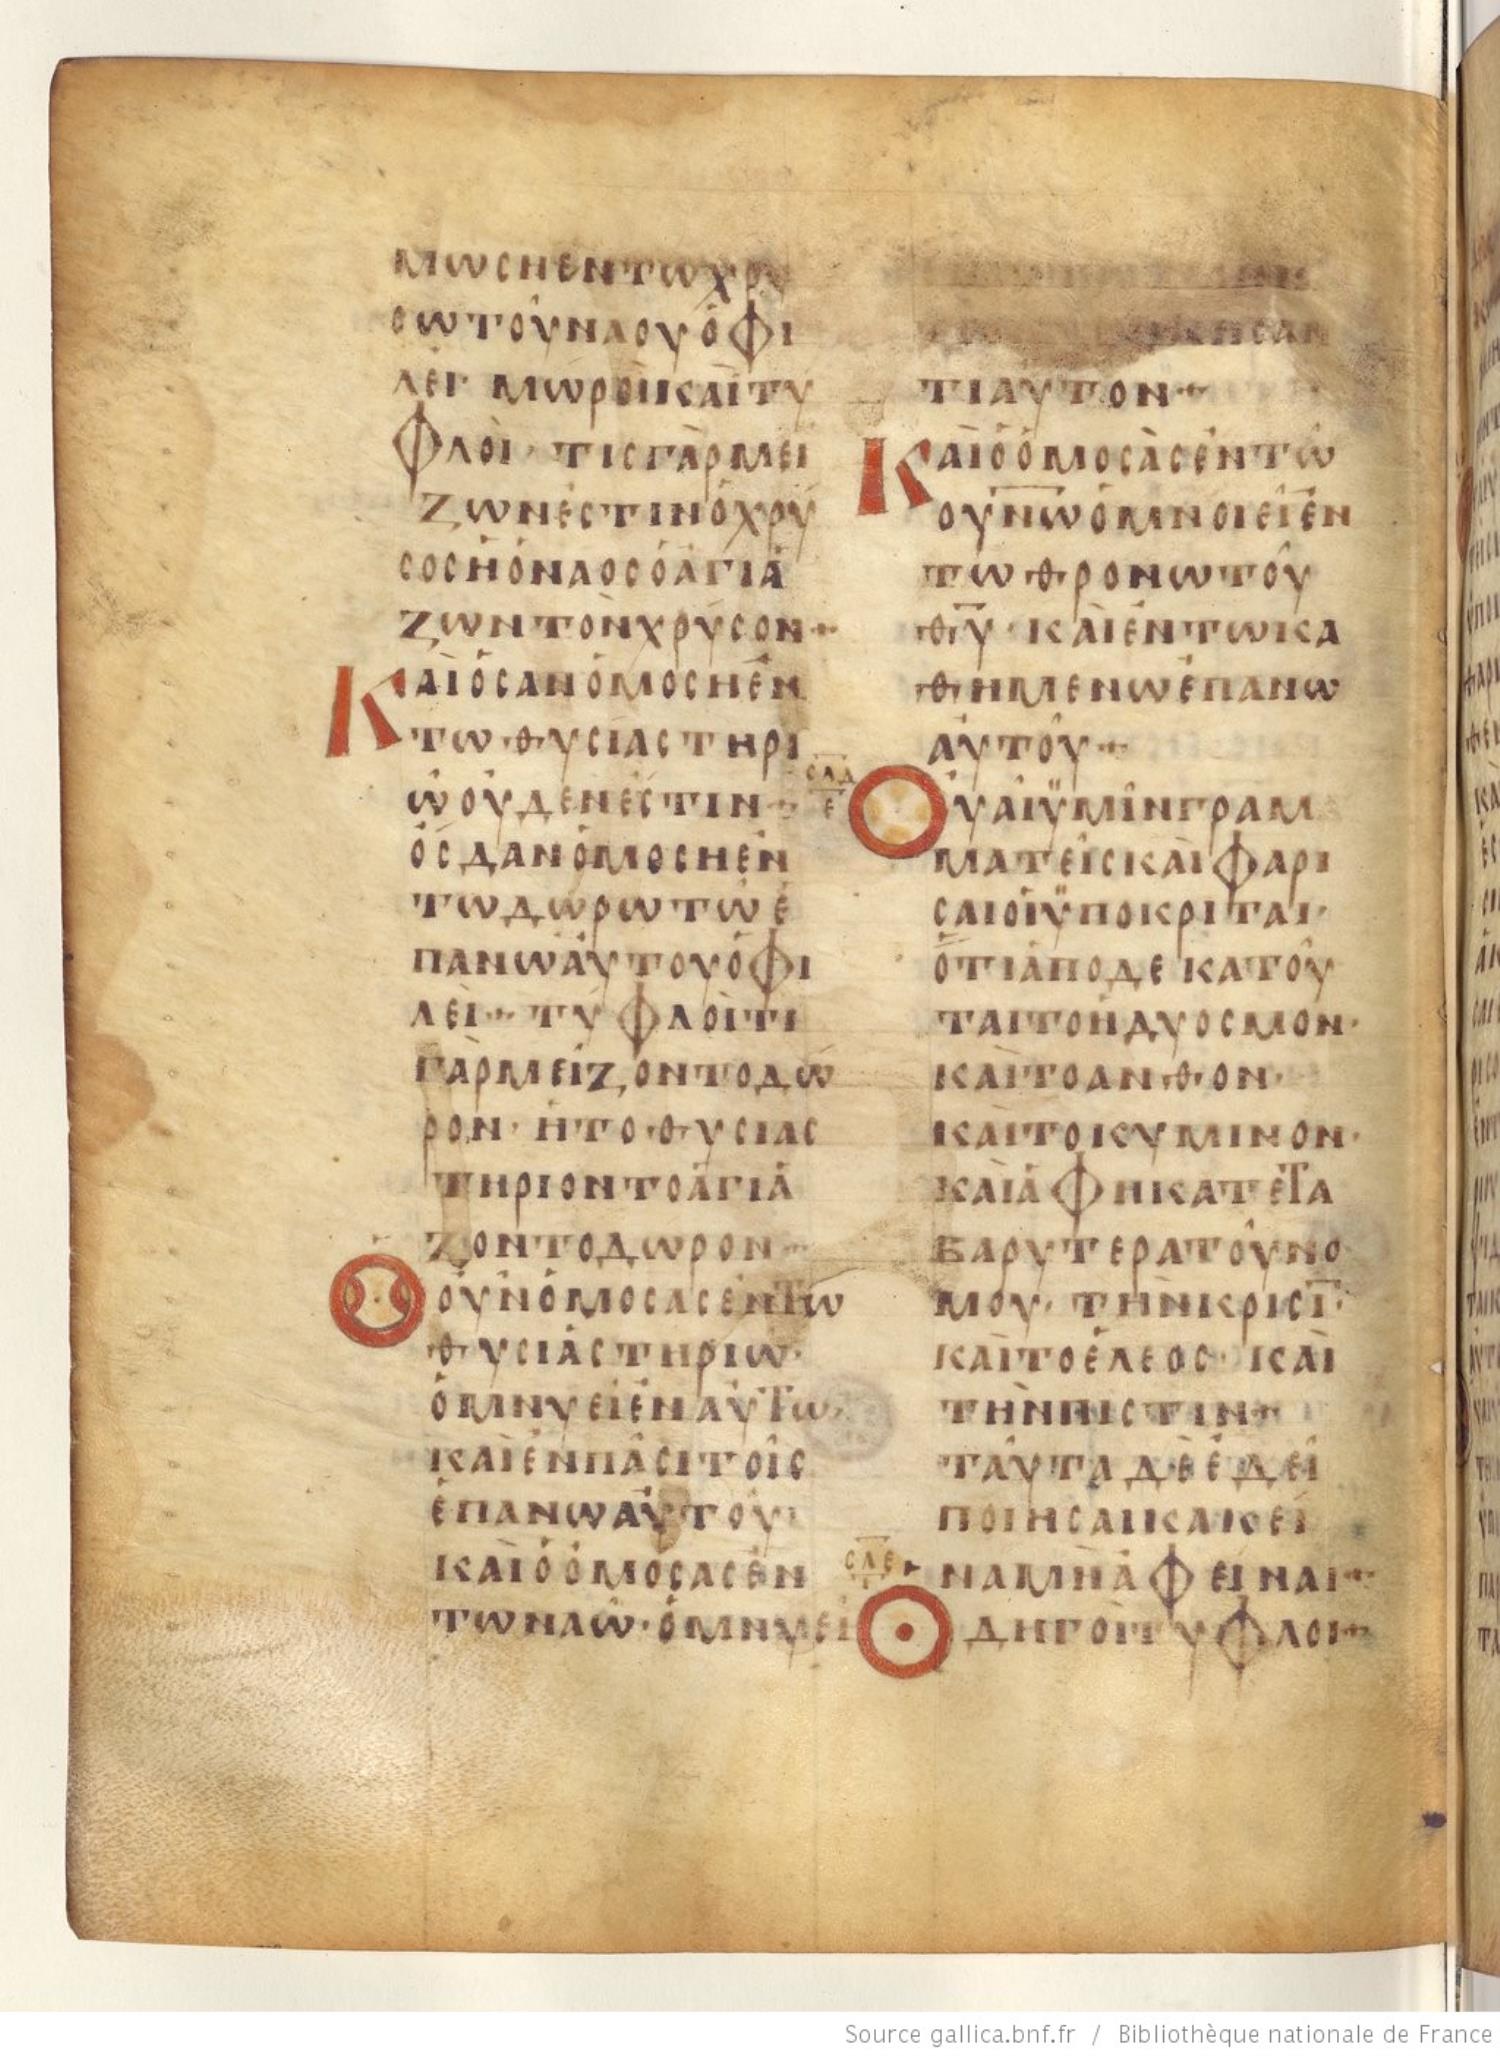 ΜΩΣΗΕΝΤΩΧΡΥ
ΣΩΤΟΥΝΑΟΥΟΦΙ
ΛΕΙ ΜΩΡΟΙΚΑΙΤΥ
ΦΛΟΙ· ΤΙΣΓΑΡΜΕΙ
ΖΩΝΕΣΤΙΝΟΧΡΥ
ΣΟΣΗΟΝΑΟΣΟΑΓΙΑ
ΖΩΝΤΟΝΧΡΥΣΟΝ·
ΚΑΙΟΣΑΝΟΜΟΣΗΕΝ
ΤΩΘΥΣΙΑΣΤΗΡΙ
ΩΟΥΔΕΝΕΣΤΙΝ·
ΟΣΔΑΝΟΜΟΣΗΕΝ
ΤΩΔΩΡΩΤΩΕ
ΠΑΝΩΑΥΤΟΥΟΦΙ
ΛΕΙ· ΤΥΦΛΟΙΤΙ
ΓΑΡΜΕΙΖΟΝΤΟΔΩ
ΡΟΝ· ΗΤΟΘΥΣΙΑΣ
ΤΗΡΙΟΝΤΟΑΓΙΑ
ΖΟΝΤΟΔΩΡΟΝ·
ΟΟΥΝΟΜΟΣΑΣΕΝΤΩ
ΘΥΣΙΑΣΤΗΡΙΩ·
ΟΜΝΥΕΙΕΝΑΥΤΩ·
ΚΑΙΕΝΠΑΣΙΤΟΙΣ
ΕΠΑΝΩΑΥΤΟΥ·
ΚΑΙΟΟΜΟΣΑΣΕΝ
ΤΩΝΑΩ·ΟΜΝΥΕΙ
ΤΙΑΥΤΟΝ·
ΚΑΙΟΟΜΟΣΑΣΕΝΤΩ
ΟΥΝΩΟΜΝΟΙΕΙΕΝ
ΤΩΘΡΟΝΩΤΟΥ
ΘΥ· ΚΑΙΕΝΤΩΚΑ
ΘΗΜΕΝΩΕΠΑΝΩ
ΑΥΤΟΥ·
ΣΛΔ
Ε
ΟΥΑΙΫΜΙΝΓΡΑΜ
ΜΑΤΕΙΣΚΑΙΦΑΡΙ
ΣΑΙΟΙΫΠΟΚΡΙΤΑΙ·
ΟΤΙΑΠΟΔΕΚΑΤΟΥ
ΤΑΙΤΟΗΔΥΟΣΜΟΝ·
ΚΑΙΤΟΑΝΘΟΝ·
ΚΑΙΤΟΚΥΜΙΝΟΝ·
ΚΑΙΑΦΗΚΑΤΕΤΑ
ΒΑΡΥΤΕΡΑΤΟΥΝΟ
ΜΟΥ· ΤΗΝΚΡΙΣΙ·
ΚΑΙΤΟΕΛΕΟΣ· ΚΑΙ
ΤΗΝΠΙΣΤΙΝ·
ΤΑΥΤΑΔΕΕΔΕΙ
ΠΟΙΗΣΑΙΚΑΚΕΙ
ΣΛΕ
ΝΑΜΗΑΦΕΙΝΑΙ·
ΟΔΗΓΟΙΤΥΦΛΟΙ·
Source gallica.bnf.fr / Bibliothèque nationale de France